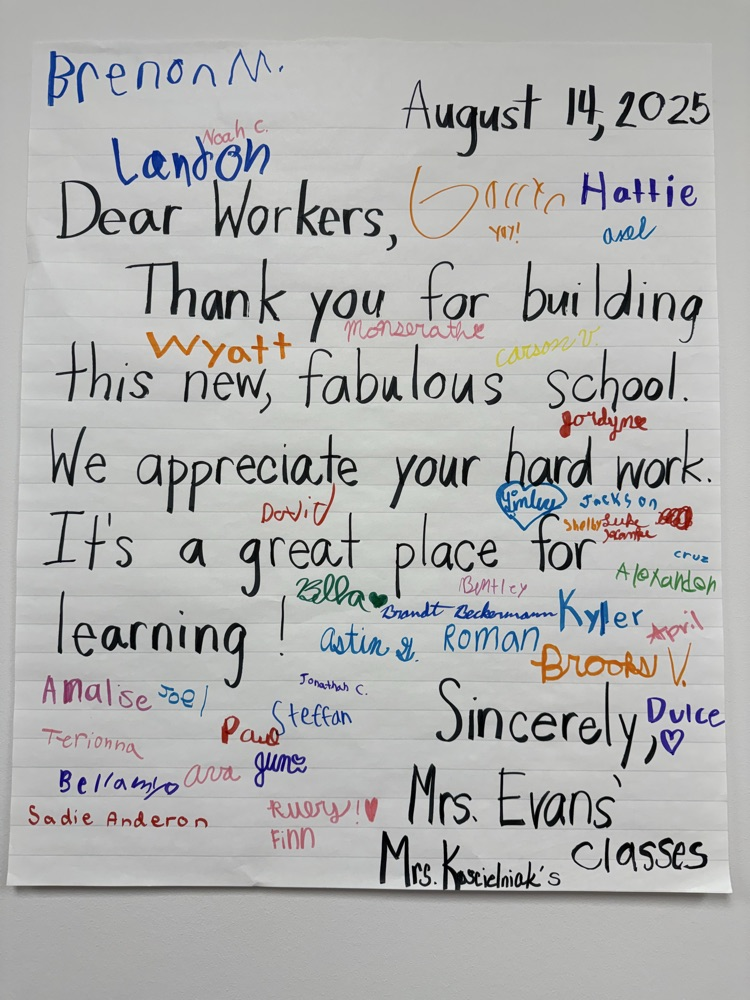 Brenon M.
August 14, 2025
Noah C.
Landon
Dear Workers,
Hattie
yay!
axel
Thank you for building
Monserathe
Wyatt
Carson V.
this new, fabulous school.
Jordyne
We appreciate your hard work.
Jackson
David
Shelby Luke
It's a great place for
cruz
Alexander
Bentley
Ella
Brandt Beckermann
Kyler
April
learning!
astin G.
Roman
Brooks V.
Jonathan C.
Analise
Joel
Steffan
Dulce
Paul
Sincerely,
Terionna
June
ava
Bellamy
Mrs. Evans'
Sadie Anderon
Ruery!
Finn
classes
Mrs. Koscielniak's